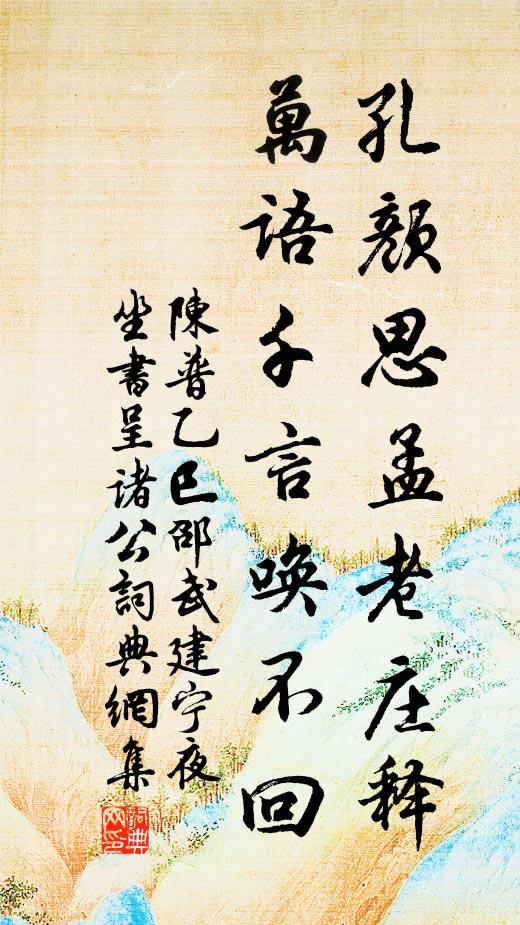 孔颜思孟老庄释
萬語千言唤不回
陳普乙巳邵武建宁夜
坐書呈诸公詞典網集
詞典